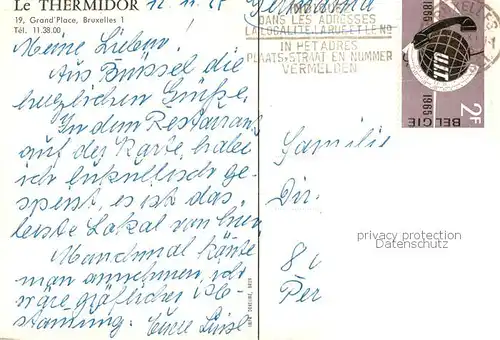 Le THERMIDOR
19, Grand'Place, Bruxelles 1
Tél. 11.38.00
Meine Lieben!
Aus Brüssel die
herzlichen Grüße.
In dem Restaurant
auf der Karte, habe
ich lukullisch ge-
speist, es ist das
beste Lokal von hier.
Manchmal könte
man annehmen, ich
wäre gräflicher Ab-
stammung. Eure Luise
DANS LES ADRESSES
LA LOCALITE, LA RUE ET LE No
IN HET ADRES
PLAATS, STRAAT EN NUMMER
VERMELDEN
1865
1965
UIT
2F
BELGIE
Familie
Dir.
8
Per
privacy protection
Datenschutz